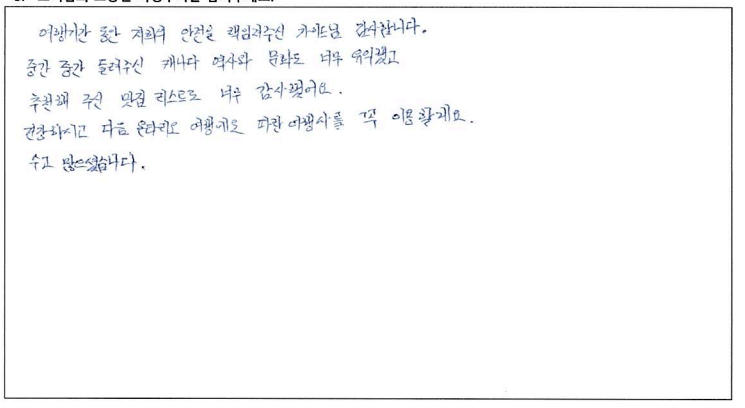 여행기간 동안 저희의 안전을 책임져주신 가이드님 감사합니다.
중간 중간 들려주신 캐나다 역사와 문화도 너무 유익했고
추천해 주신 맛집 리스트도 너무 감사했어요.
건강하시고 다음 온타리오 여행에도 파란여행사를 꼭 이용할게요.
수고 많으셨습니다.